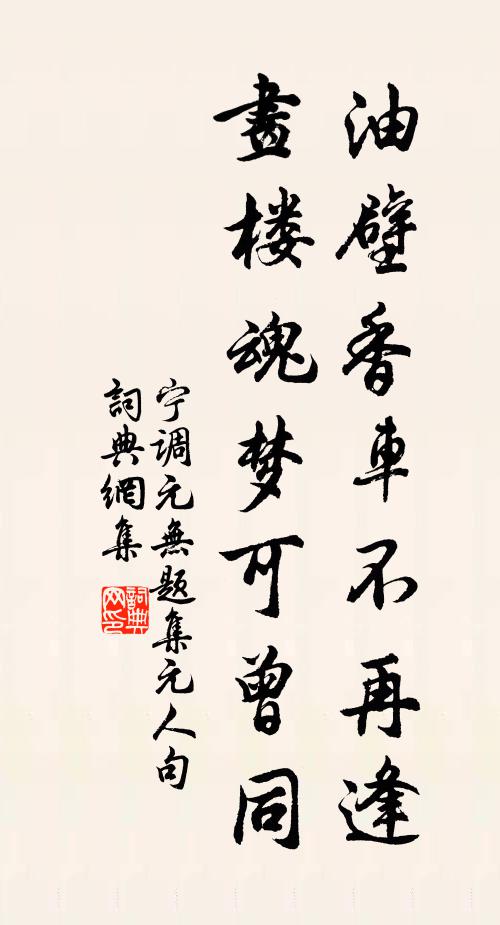 油壁香車不再逢
畫楼魂梦可曾同
宁调元無题集元人句
詞典網集
詞典网印